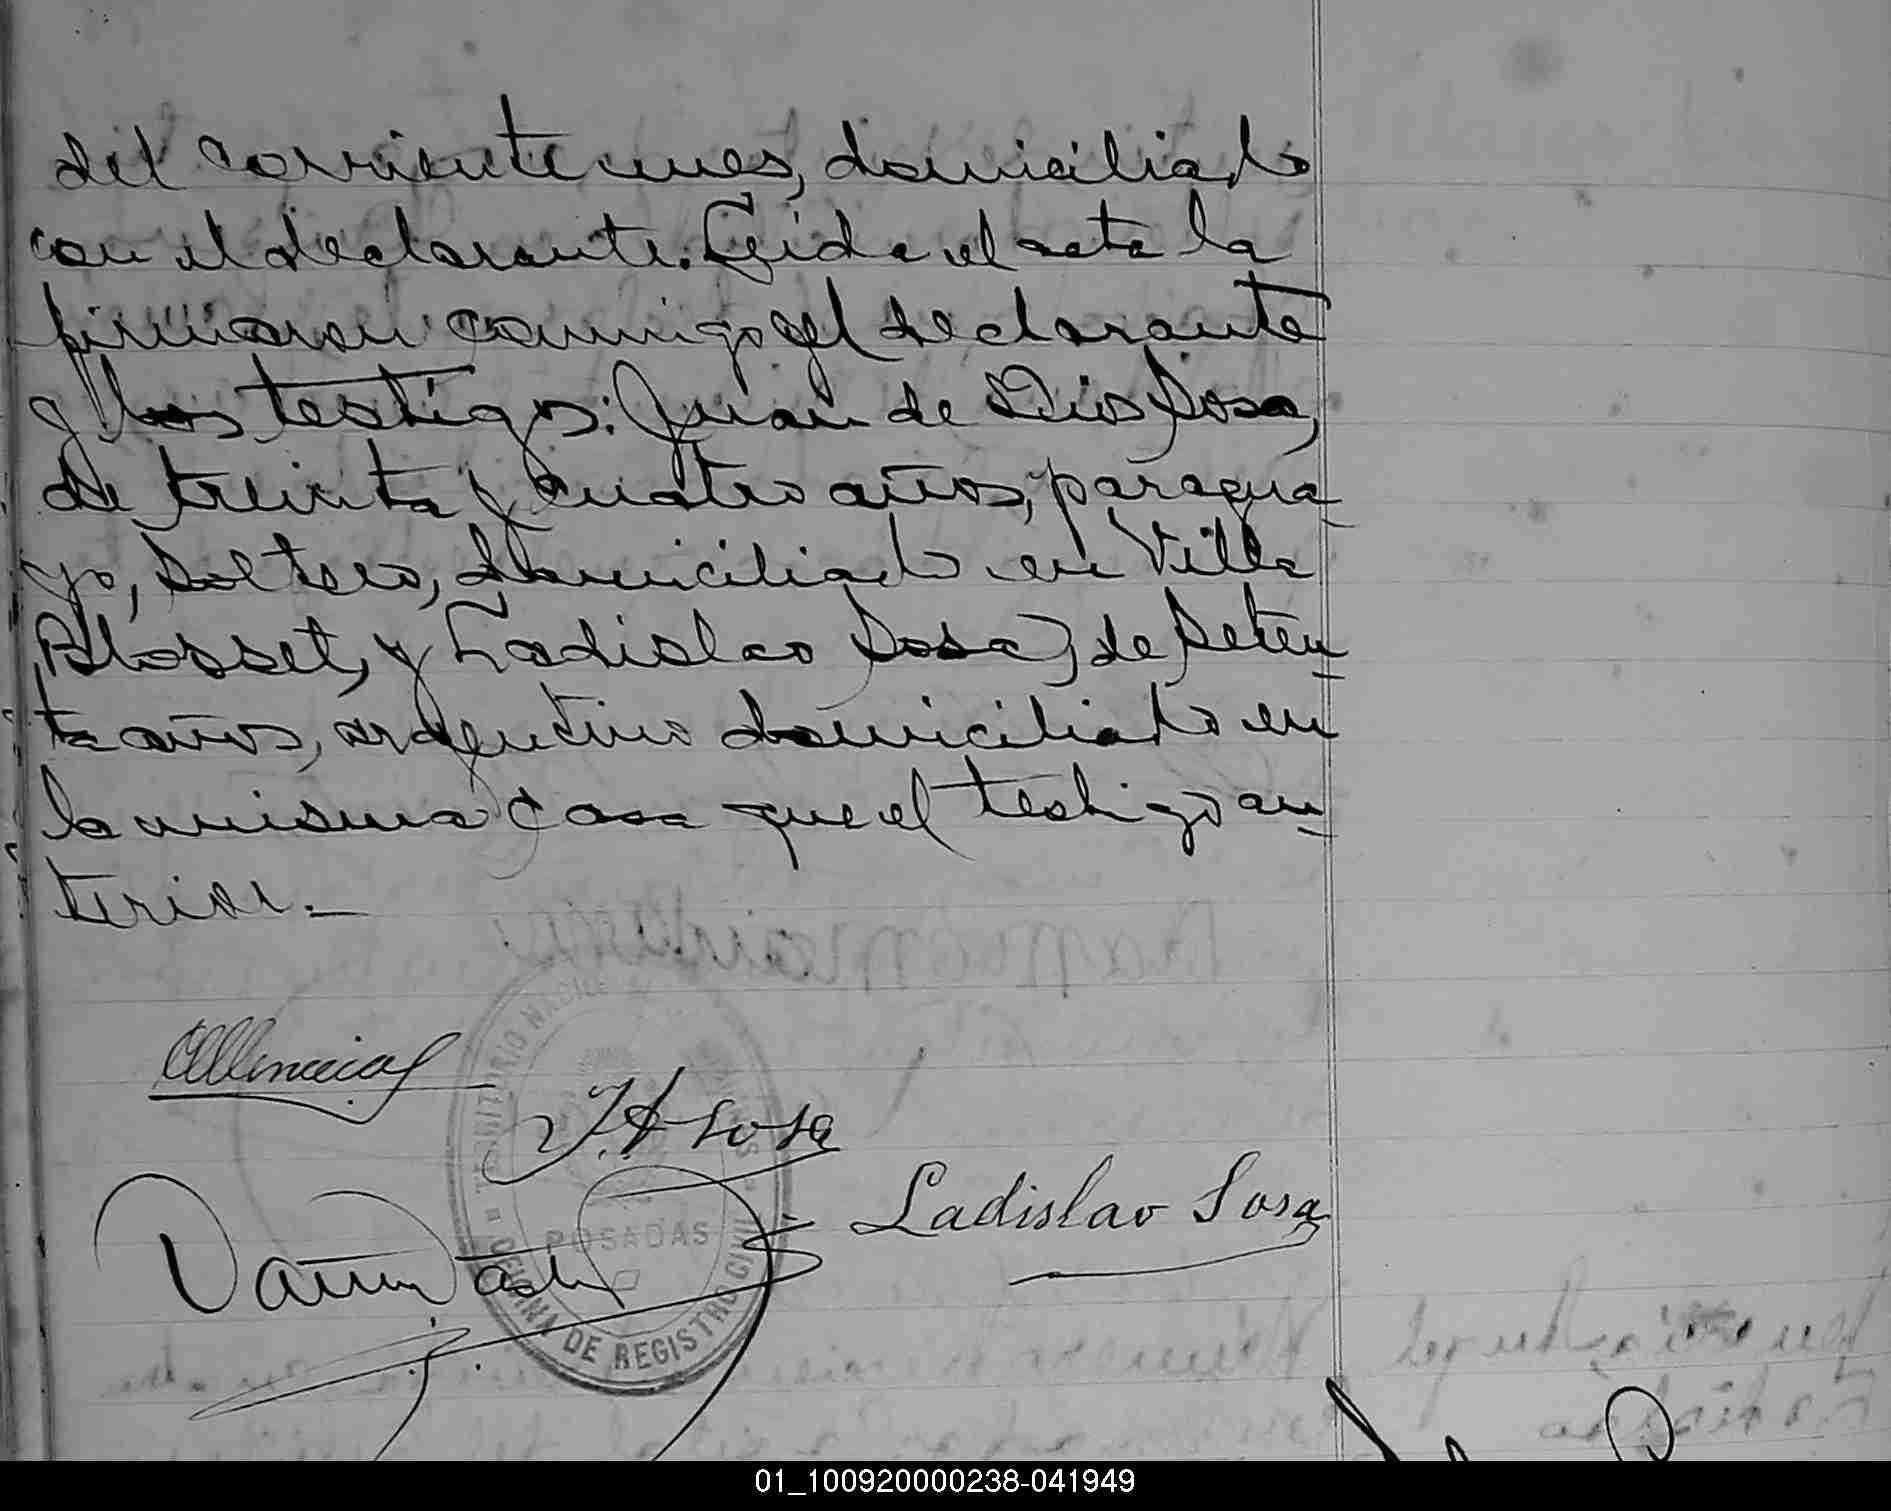 del corriente mes, domiciliado
con el declarante. Leida el acta la
firmaron conmigo el declarante
y los testigos: Juan de Dios Sosa,
de treinta y cuatro años, paragua-
yo, soltero, domiciliado en Villa
Blosset, y Ladislao Sosa, de seten-
ta años, argentino domiciliado en
la misma casa que el testigo an-
terior.-
J. A Sosa
Ladislao Sosa
POSADAS
OFICINA DE REGISTRO CIVIL
01_100920000238-041949